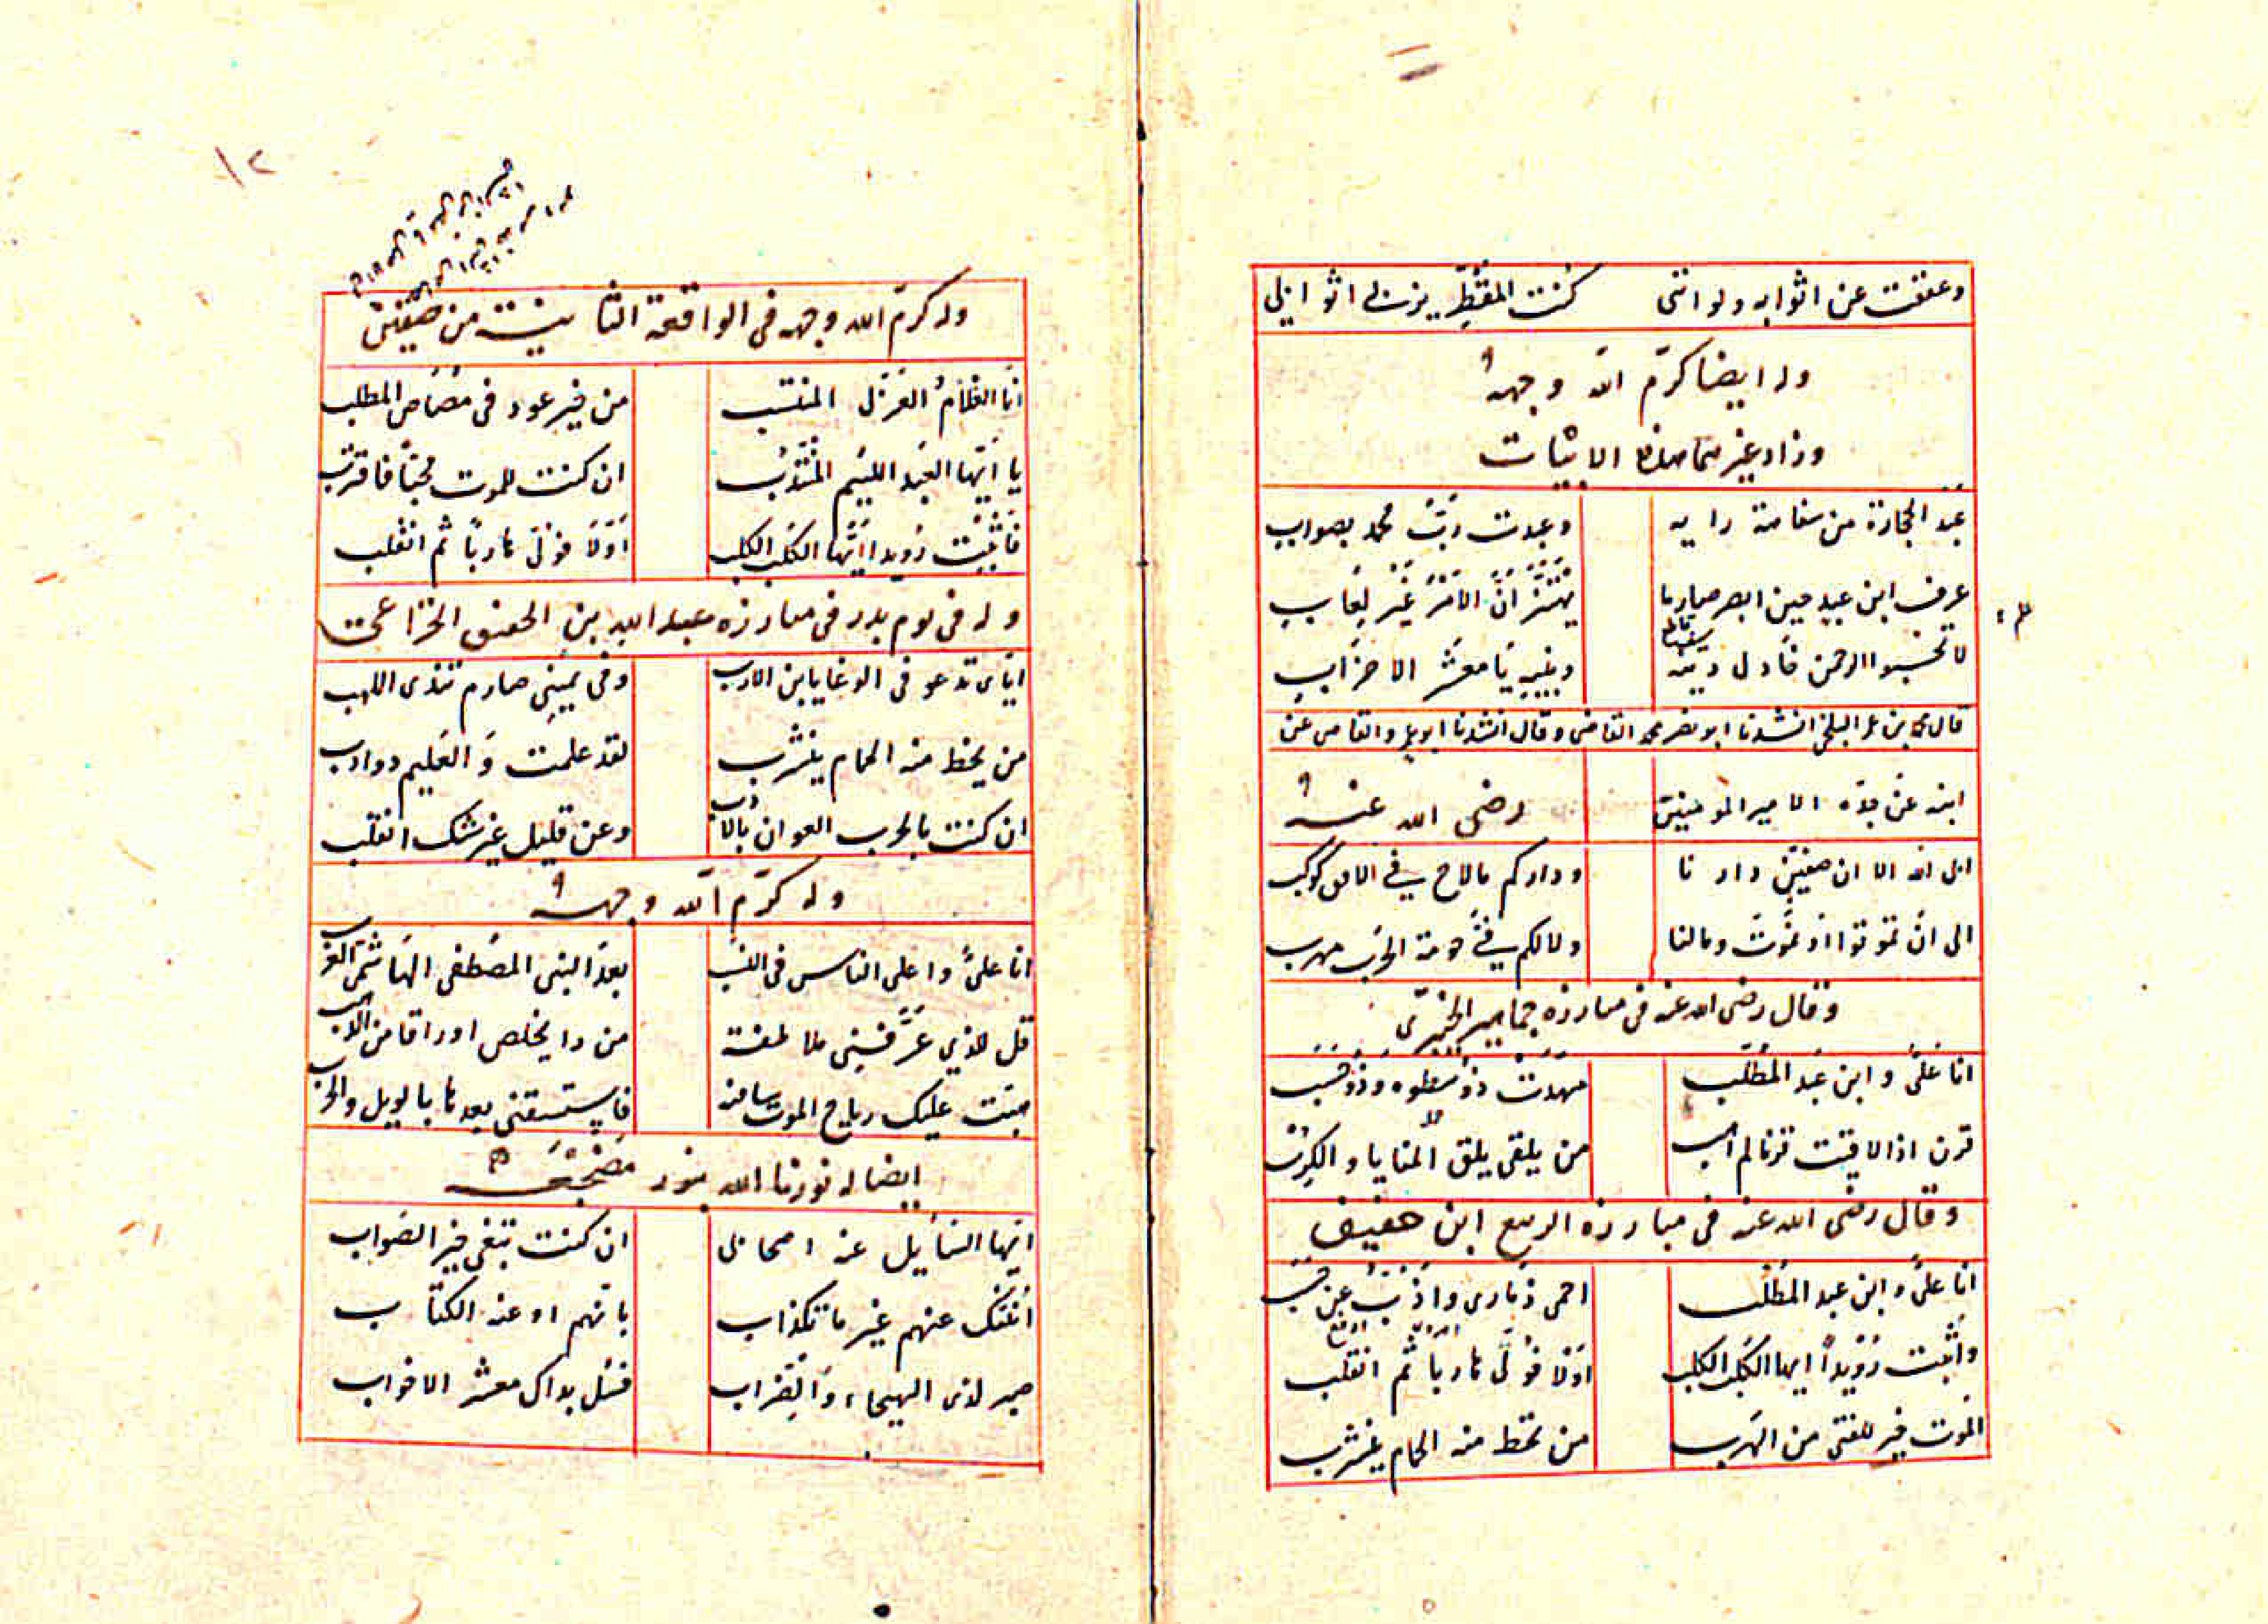 وعففت عن اثوابه ولو اننى كنت المقطر يزنى اثوابى
وله ايضا كرم الله وجهه
وزاد غيرهما هذه الابيات
عبد الحجارة من سفاهة رايه وعبدت رب محمد بصواب
عرف ابن عبد حين ابصر صارما يهتز ان الامر غير لعاب
لا تحسبوا الرحمن خاذل دينه ونبيه يا معشر الاحزاب
قال بن عمر البلخى انشدنا ابو نصر محمد القاضى وقال انشدنا ابو عمرو القاضى عن
ابيه عن جده الامير المومنين رضى الله عنه
الى الله الا ان صفين دارنا وداركم ما لاح في الافق كوكب
الى ان تموتوا او نموت وما لنا وما لكم في حومة الحرب مهرب
وقال رضى الله عنه فى مبارزه جماهير الخيبرى
انا على وابن عبد المطلب مهذب ذو سطوه وذو حسب
قرن اذا لاقيت قرنا لم اهب من يلقى يلق المنايا والكرب
وقال رضى الله عنه فى مبارزه الربيع ابن حقيق
انا على وابن عبد المطلب احمى ذمارى واذب عن حسب
واثبت رويدا ايها الكلب الكلب اولا فولى هاربا ثم انقلب
الموت خير للفتى من الهرب من تخط منه الحمام ينشرب
١٢
وله كرم الله وجهه فى الواقعة الثانية من صفين
انا الغلام العزل المنتسب من خير عود فى مصاص المطلب
يا ايها العبد اللئيم المنتدب ان كنت للموت محبا فاقترب
فاثبت رويدا ايها الكلب الكلب اولا فولى هاربا ثم انقلب
وله فى يوم بدر فى مبارزه عبد الله بن الحقيق الخزاعى
اياى تدعو فى الوغا يابن الارب وفى يمينى صارم تبدى اللهب
من يخط منه الحمام ينشرب لقد علمت والعليم ذو ادب
ان كنت بالحرب العوان بالارب وعن قليل غير شك انقلب
وله كرم الله وجهه
انا على واعلى الناس فى النسب بعد النبى المصطفى الهاشمى العرب
قل للذي غره منى ملاطفة من ذا يخلص اوراقا من الذهب
هبت عليك رياح الموت سافية فاستبقنى بعدها بالويل والحرب
ايضا له نورنا الله بنور مضجعه
ايها السائل عنه اصحابى ان كنت تبغى خير الصواب
انبئك عنهم غير ما تكذاب بانهم اوعية الكتاب
صبر لدى الهيجاء والضراب فسل بذاك معشر الاحزاب